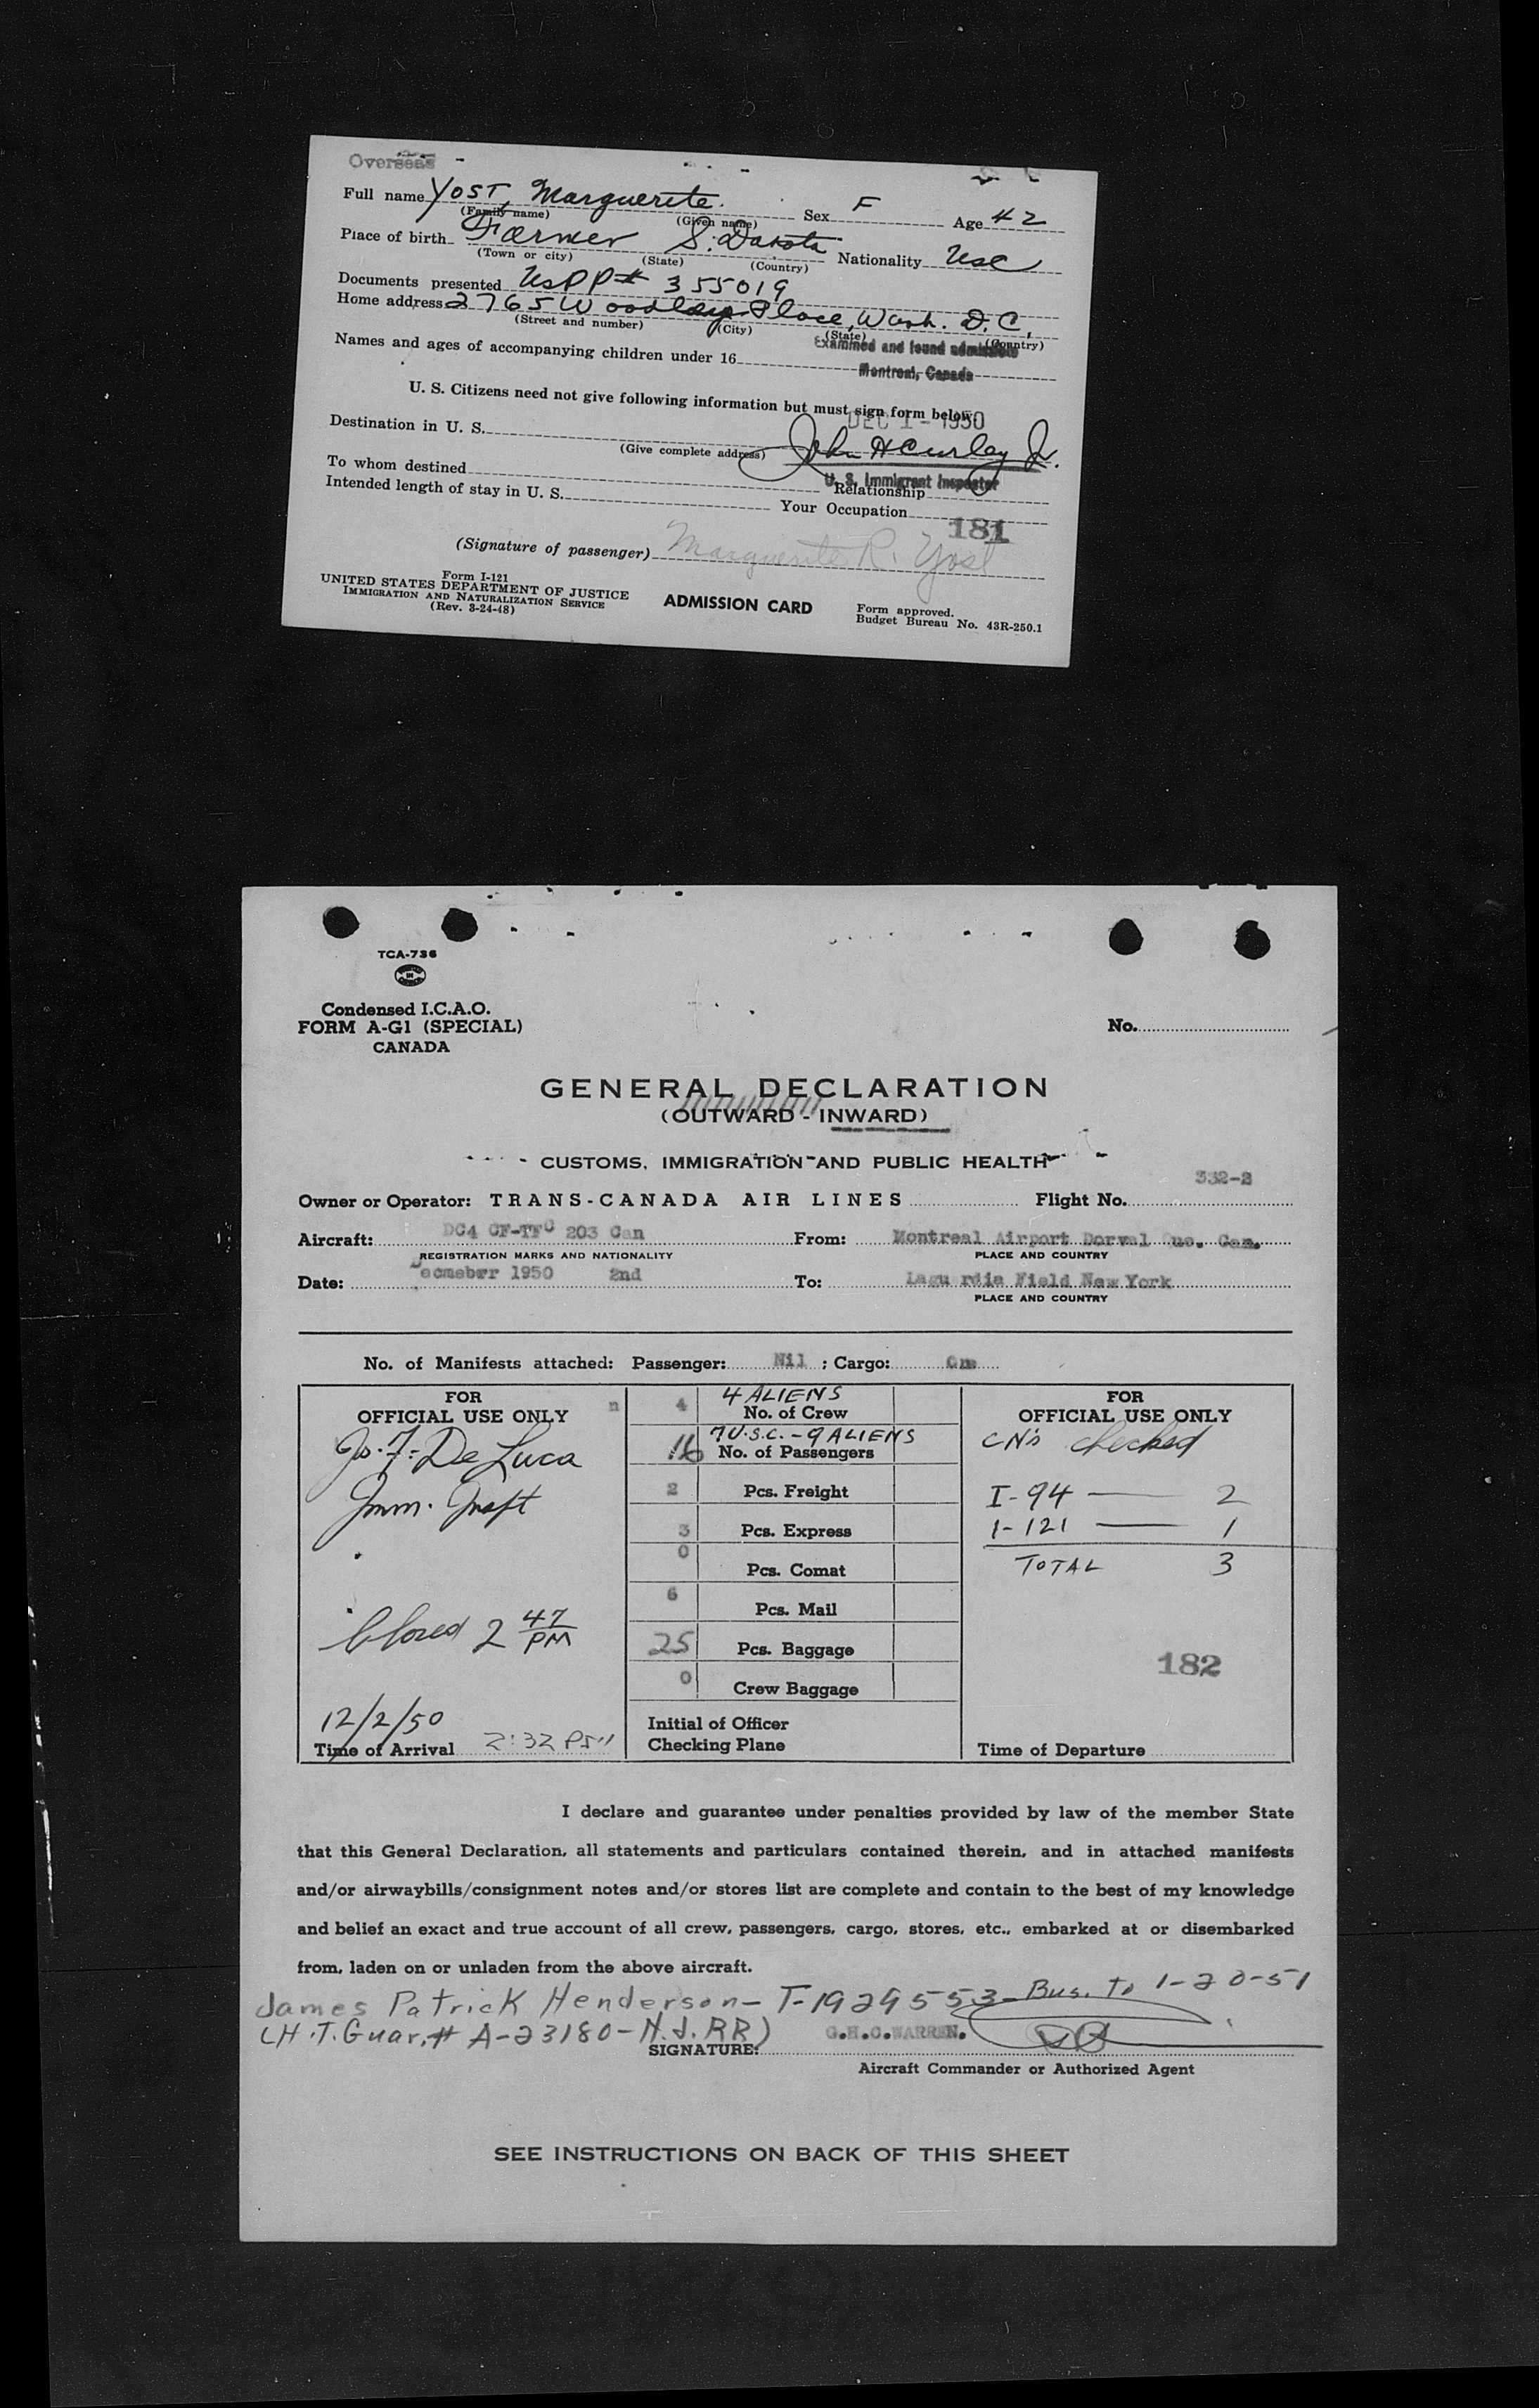 Overseas
Full name YOST, Marguerite. Sex F Age 42
(Family name) (Given name)
Place of birth Farmer S. Dakota Nationality USC
(Town or city) (State) (Country)
Documents presented USPP# 355019
Home address 2765 Woodley Place, Wash. D.C,
(Street and number) (City) (State) (Country)
Names and ages of accompanying children under 16
Examined and found admissible
Montreal, Canada
U. S. Citizens need not give following information but must sign form below.
DEC 1 - 1950
Destination in U. S.
(Give complete address)
John H Curley Jr.
To whom destined Relationship
U. S. Immigrant Inspector
Intended length of stay in U. S. Your Occupation
181
(Signature of passenger) Marguerite R. Yost
Form I-121
UNITED STATES DEPARTMENT OF JUSTICE
IMMIGRATION AND NATURALIZATION SERVICE
(Rev. 3-24-48)
ADMISSION CARD
Form approved.
Budget Bureau No. 43R-250.1
TCA-736
Condensed I.C.A.O.
FORM A-G1 (SPECIAL)
CANADA
No.
GENERAL DECLARATION
(OUTWARD - INWARD)
CUSTOMS, IMMIGRATION AND PUBLIC HEALTH
Owner or Operator: TRANS-CANADA AIR LINES Flight No. 332-2
Aircraft: DC4 CF-TFC 203 Can From: Montreal Airport Dorval Que. Can.
REGISTRATION MARKS AND NATIONALITY PLACE AND COUNTRY
Date: Decmeber 1950 2nd To: Laguardia Field New York
PLACE AND COUNTRY
No. of Manifests attached: Passenger: Nil ; Cargo:
FOR
OFFICIAL USE ONLY
Jo. F. De Luca
Imm. Inspt
Closed 2 47 PM
12/2/50
Time of Arrival 2:32 PM
n 4 4 ALIENS
No. of Crew
16 7 U.S.C. - 9 ALIENS
No. of Passengers
2 Pcs. Freight
3 Pcs. Express
0 Pcs. Comat
6 Pcs. Mail
25 Pcs. Baggage
0 Crew Baggage
Initial of Officer
Checking Plane
FOR
OFFICIAL USE ONLY
CN's checked
I-94 — 2
I-121 — 1
TOTAL 3
182
Time of Departure
I declare and guarantee under penalties provided by law of the member State
that this General Declaration, all statements and particulars contained therein, and in attached manifests
and/or airwaybills/consignment notes and/or stores list are complete and contain to the best of my knowledge
and belief an exact and true account of all crew, passengers, cargo, stores, etc., embarked at or disembarked
from, laden on or unladen from the above aircraft.
James Patrick Henderson - T-1929553 - Bus. To 1-20-51
(H.T. Guar. # A-23180 - N.J. RR) G.H.C.WARREN.
SIGNATURE:
Aircraft Commander or Authorized Agent
SEE INSTRUCTIONS ON BACK OF THIS SHEET